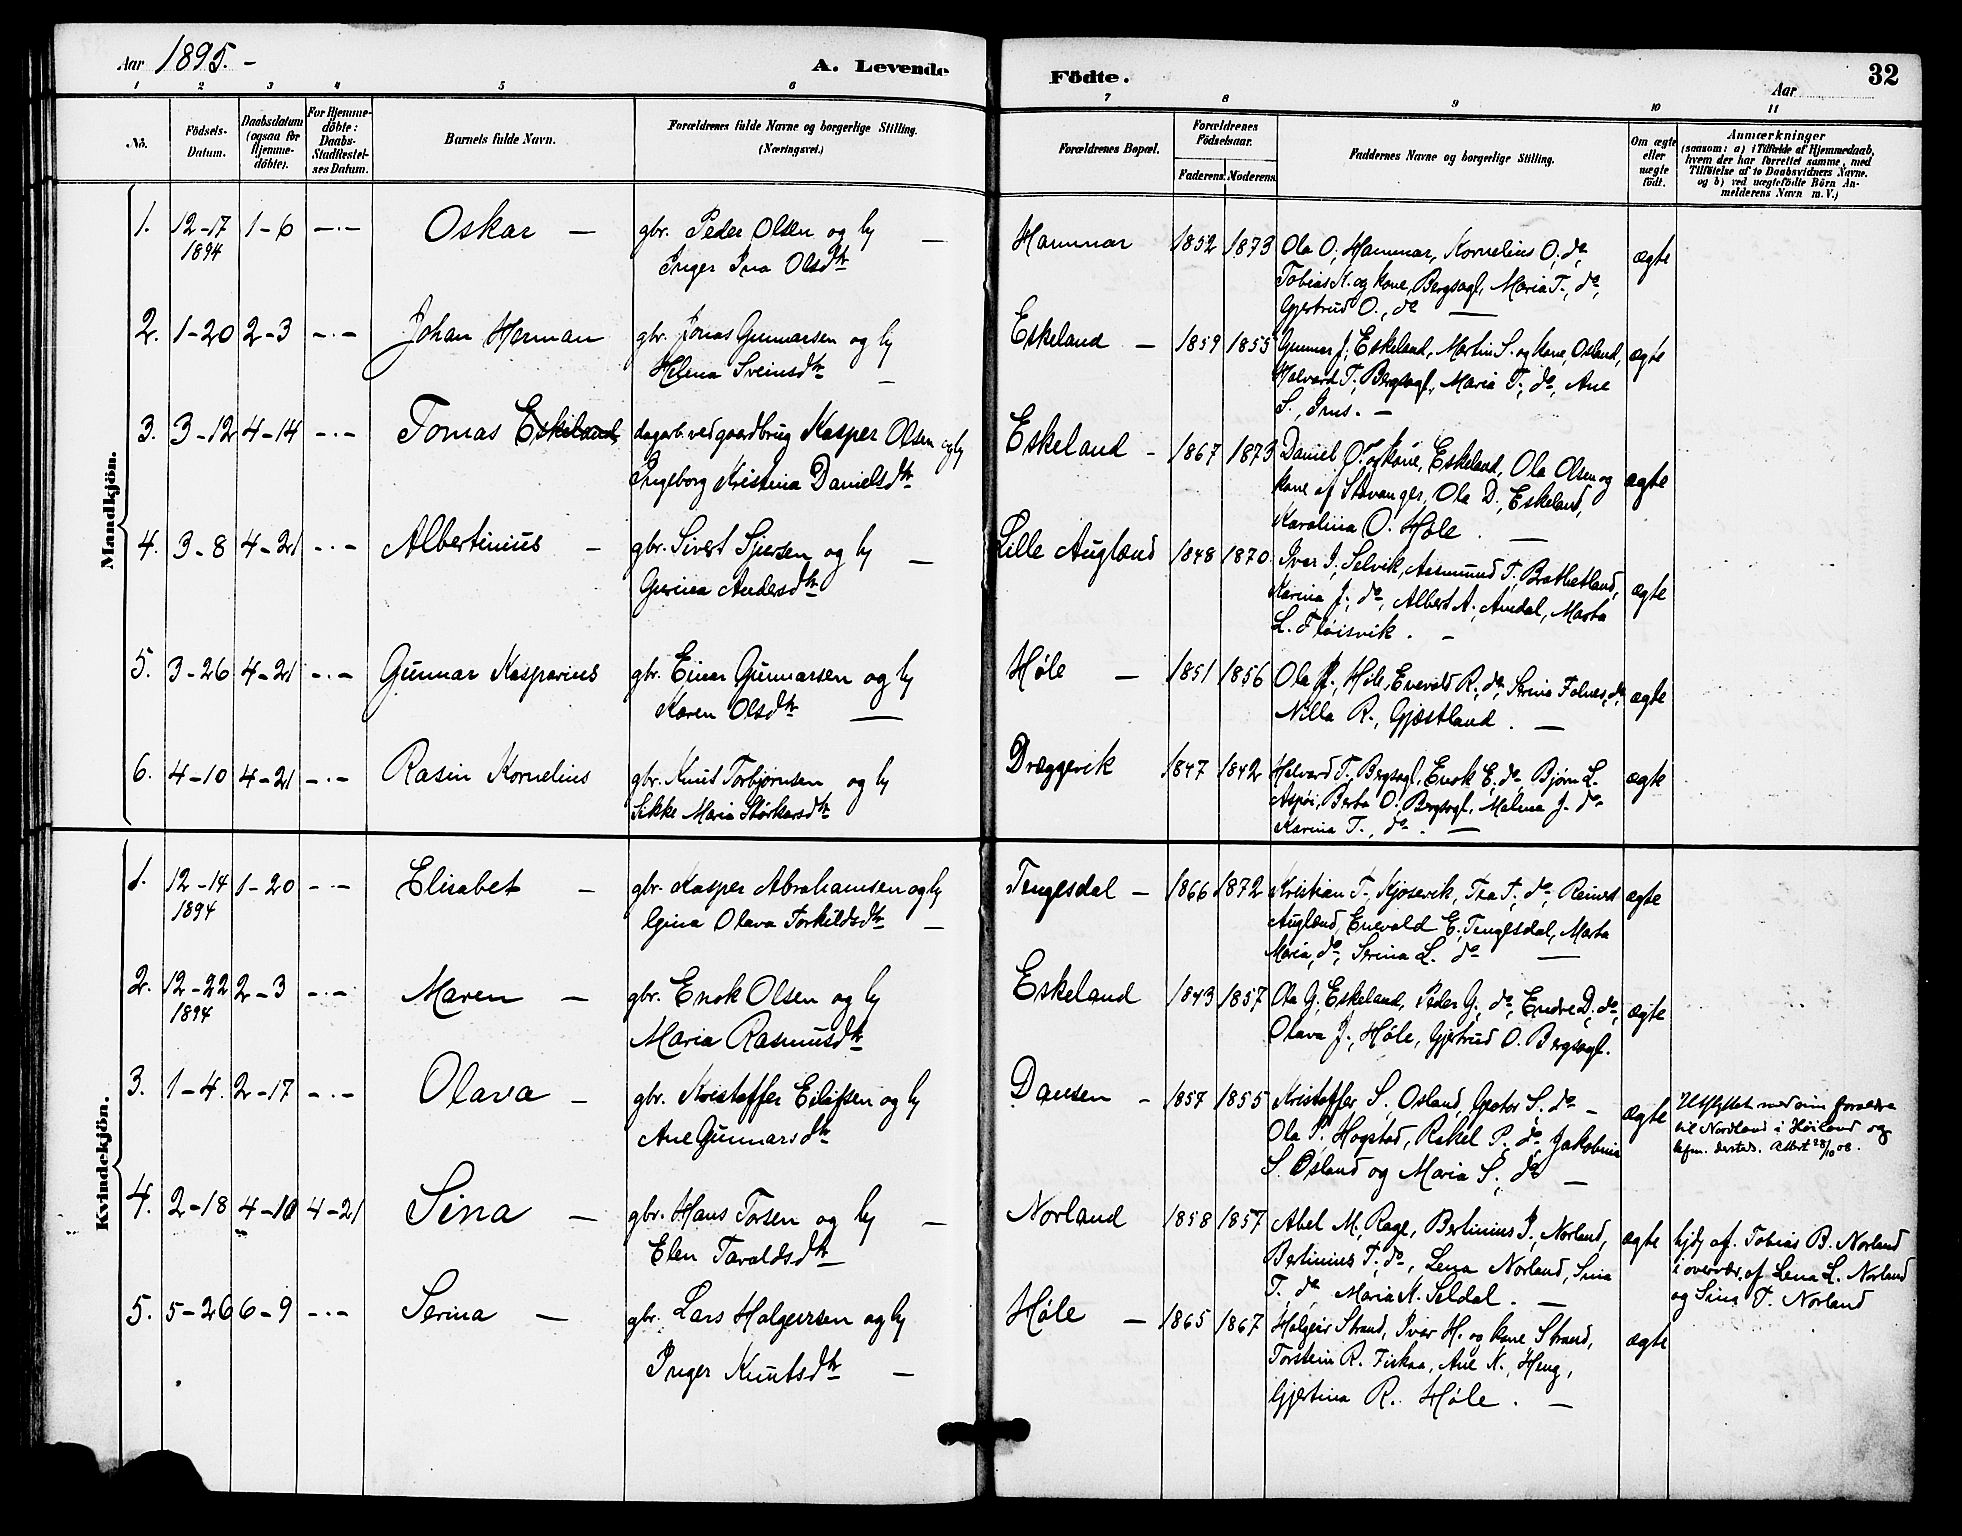 Aar 1895. -
A. Levende
Födte.
Aar
32
1 2 3 4 5 6 7 8 9 10 11
No.
Födsels-
Datum.
Daabsdatum
(ogsaa for
Hjemme-
döbte).
For Hjemme-
döbte:
Daabs-
Stadfæstel-
ses Datum.
Barnets fulde Navn.
Forældrenes fulde Navne og borgerlige Stilling.
(Næringsvei.)
Forældrenes Bopæl.
Forældrenes
Födselsaar.
Faderens. Moderens.
Faddernes Navne og borgerlige Stilling.
Om ægte
eller
uægte
födt.
Anmærkninger
(saasom: a) i Tilfælde af Hjemmedaab,
hvem der har forrettet samme, med
Tilföielse af to Daabsvidners Navne.
og b) ved uægtefödte Börn An-
melderens Navn m. V.)
Mandkjön.
1. 12-17 1-6 -.- Oskar - gbr. Peder Olsen og hu - Hammar 1852 1873 Ola O. Hammar, Kornelius O. do, ægte
1894 Inger Ina Olsdtr Tobias K. og kone, Bergsagl, Maria T., do,
Gjertrud O., do -
2. 1-20 2-3 -.- Johan Herman gbr. Jonas Gunnarsen og hu Eskeland - 1859 1855 Gunnar J. Eskeland, Martin S. og kone, Osland, ægte
Helena Sveinsdtr - Halvard T. Bergsagl, Maria T., do, Ane
S., Ims. -
3. 3-12 4-14 -.- Tomas Eskeland dagarb. ved gaardbrug Kasper Olsen og hu Eskeland - 1867 1873 Daniel O. og kone, Eskeland, Ola Olsen og ægte
Ingeborg Kristina Danielsdtr kone af Stavanger, Ola D., Eskeland,
Karolina O. Høle. -
4. 3-8 4-21 -.- Albertinius - gbr. Sivert Sjursen og hu - Lille Auglænd 1848 1870 Ivar I. Selvik, Asmund T. Brattetland, ægte
Gurina Andersdtr Karina J., do, Albert A. Aredal, Marta
L. Fløisvik. -
5. 3-26 4-21 -.- Gunnar Kasparius gbr. Einar Gunnarsen og hu Høle - 1851 1856 Ola J., Høle, Enevald R., do, Serina do, ægte
Karen Olsdtr - Nilla R., Gjæstland. -
6. 4-10 4-21 -.- Rasin Kornelius gbr. Knut Torbjørnsen og hu Dræggevik 1847 1842 Halvard T. Bergsagl, Enok E. do, Bjørn L. ægte
Sikke Maria Størkarsdtr Aspøi, Berta O. Bergsagl, Malena J. do
Karina T., do. -
Kvindekjön.
1. 12-14 1-20 -.- Elisabet - gbr. Kasper Abrahamsen og hu Tengesdal - 1866 1872 Kristian T. Kjosevik, Tea T., do, Reinert ægte
1894 Gina Olava Torkildsdtr - Auglænd, Enevald E. Tengesdal, Marta
Maria, do, Serina L. do -
2. 12-22 2-3 -.- Maren - gbr. Enok Olsen og hu Eskeland 1843 1857 Ola G. Eskeland, Peder G., do, Endre D. do, ægte
1894 Maria Rasmusdtr Olava J., Høle, Gjertrud O. Bergsagl.
3. 1-4. 2-17 -.- Olava - gbr. Kristoffer Eilifsen og hu Dausen - 1857 1855 Kristoffer S. Osland, S. do - ægte Utflyttet med sine forældre
Ane Gunnarsdtr Ola P. Hogstad, Rakel P. do, Jakobina til Nordland i Høiland og
S. Osland og Maria S., do - kfm. dersteds. Attest 28/10 08.
4. 2-18 4-10 4-21 Sina - gbr. Hans Torsen og hu - Norland 1858 1857 Abel M. Rage, Bertinius I., Norland, ægte hjdp af Tobias B. Norland
Elen Tavaldsdtr Bertinius T., do, Lena Norland, Sina i overvær. af Lena L. Norland
T. do, Maria K. Seldal. - og Sina T. Norland
5. 5-26 6-9 -.- Serina - gbr. Lars Holgeirsen og hu Høle - 1865 1867 Holgeir Strand, Ivar H. og kone Strand, ægte
Inger Knutsdtr - Torstein R. Fiskaa, Ane K., Heng,
Gjertina R. Høle. -